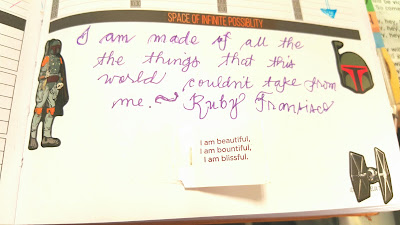 SPACE OF INFINITE POSSIBLITY
I am made of all the
the things that this
world couldn't take from
me. ~ Ruby Francisco
I am beautiful,
I am bountiful,
I am blissful.